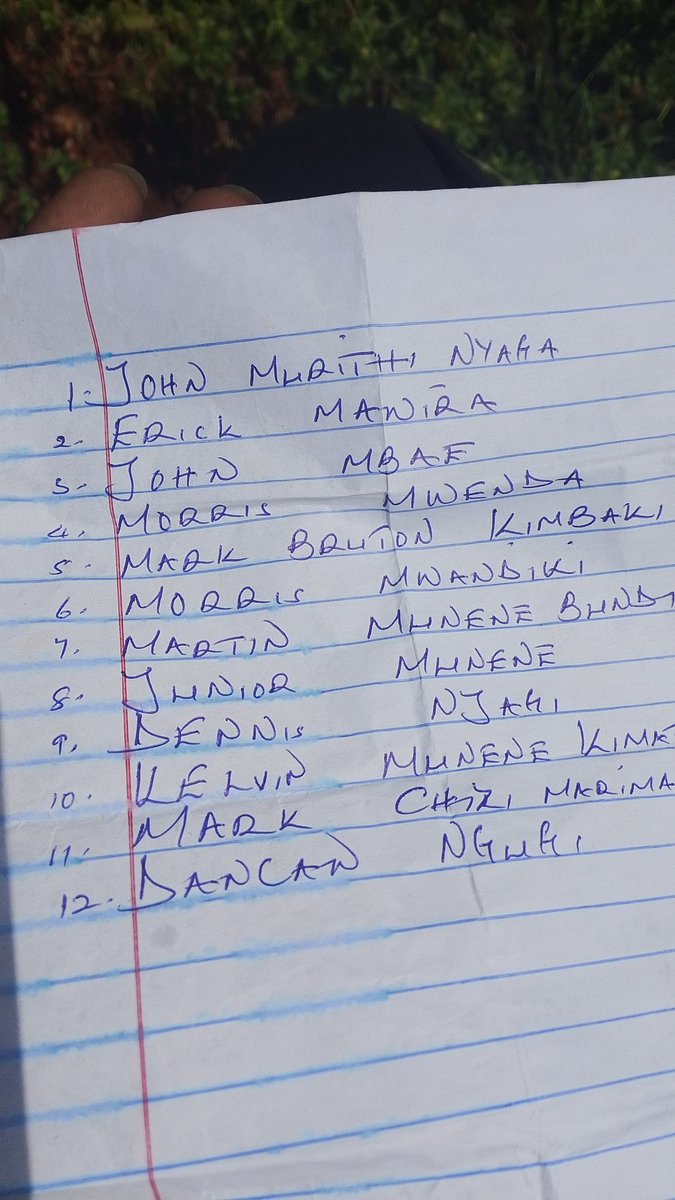 1. JOHN MURITHI NYAGA
2. ERICK MAWIRA
3. JOHN MBAE
4. MORRIS MWENDA
5. MARK BRUTON KIMBAKI
6. MORRIS MWANDIKI
7. MARTIN MUNENE BUNDI
8. JUNIOR MUNENE
9. DENNIS NJAGI
10. KELVIN MUNENE
11. MARK CHIZI MARIMA
12. DANCAN NGUGI